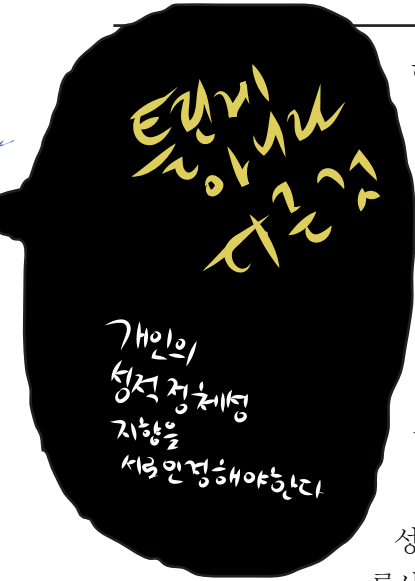 틀린게
아니라
다른 것
개인의
성적 정체성
지향을
서로 인정해야한다
성